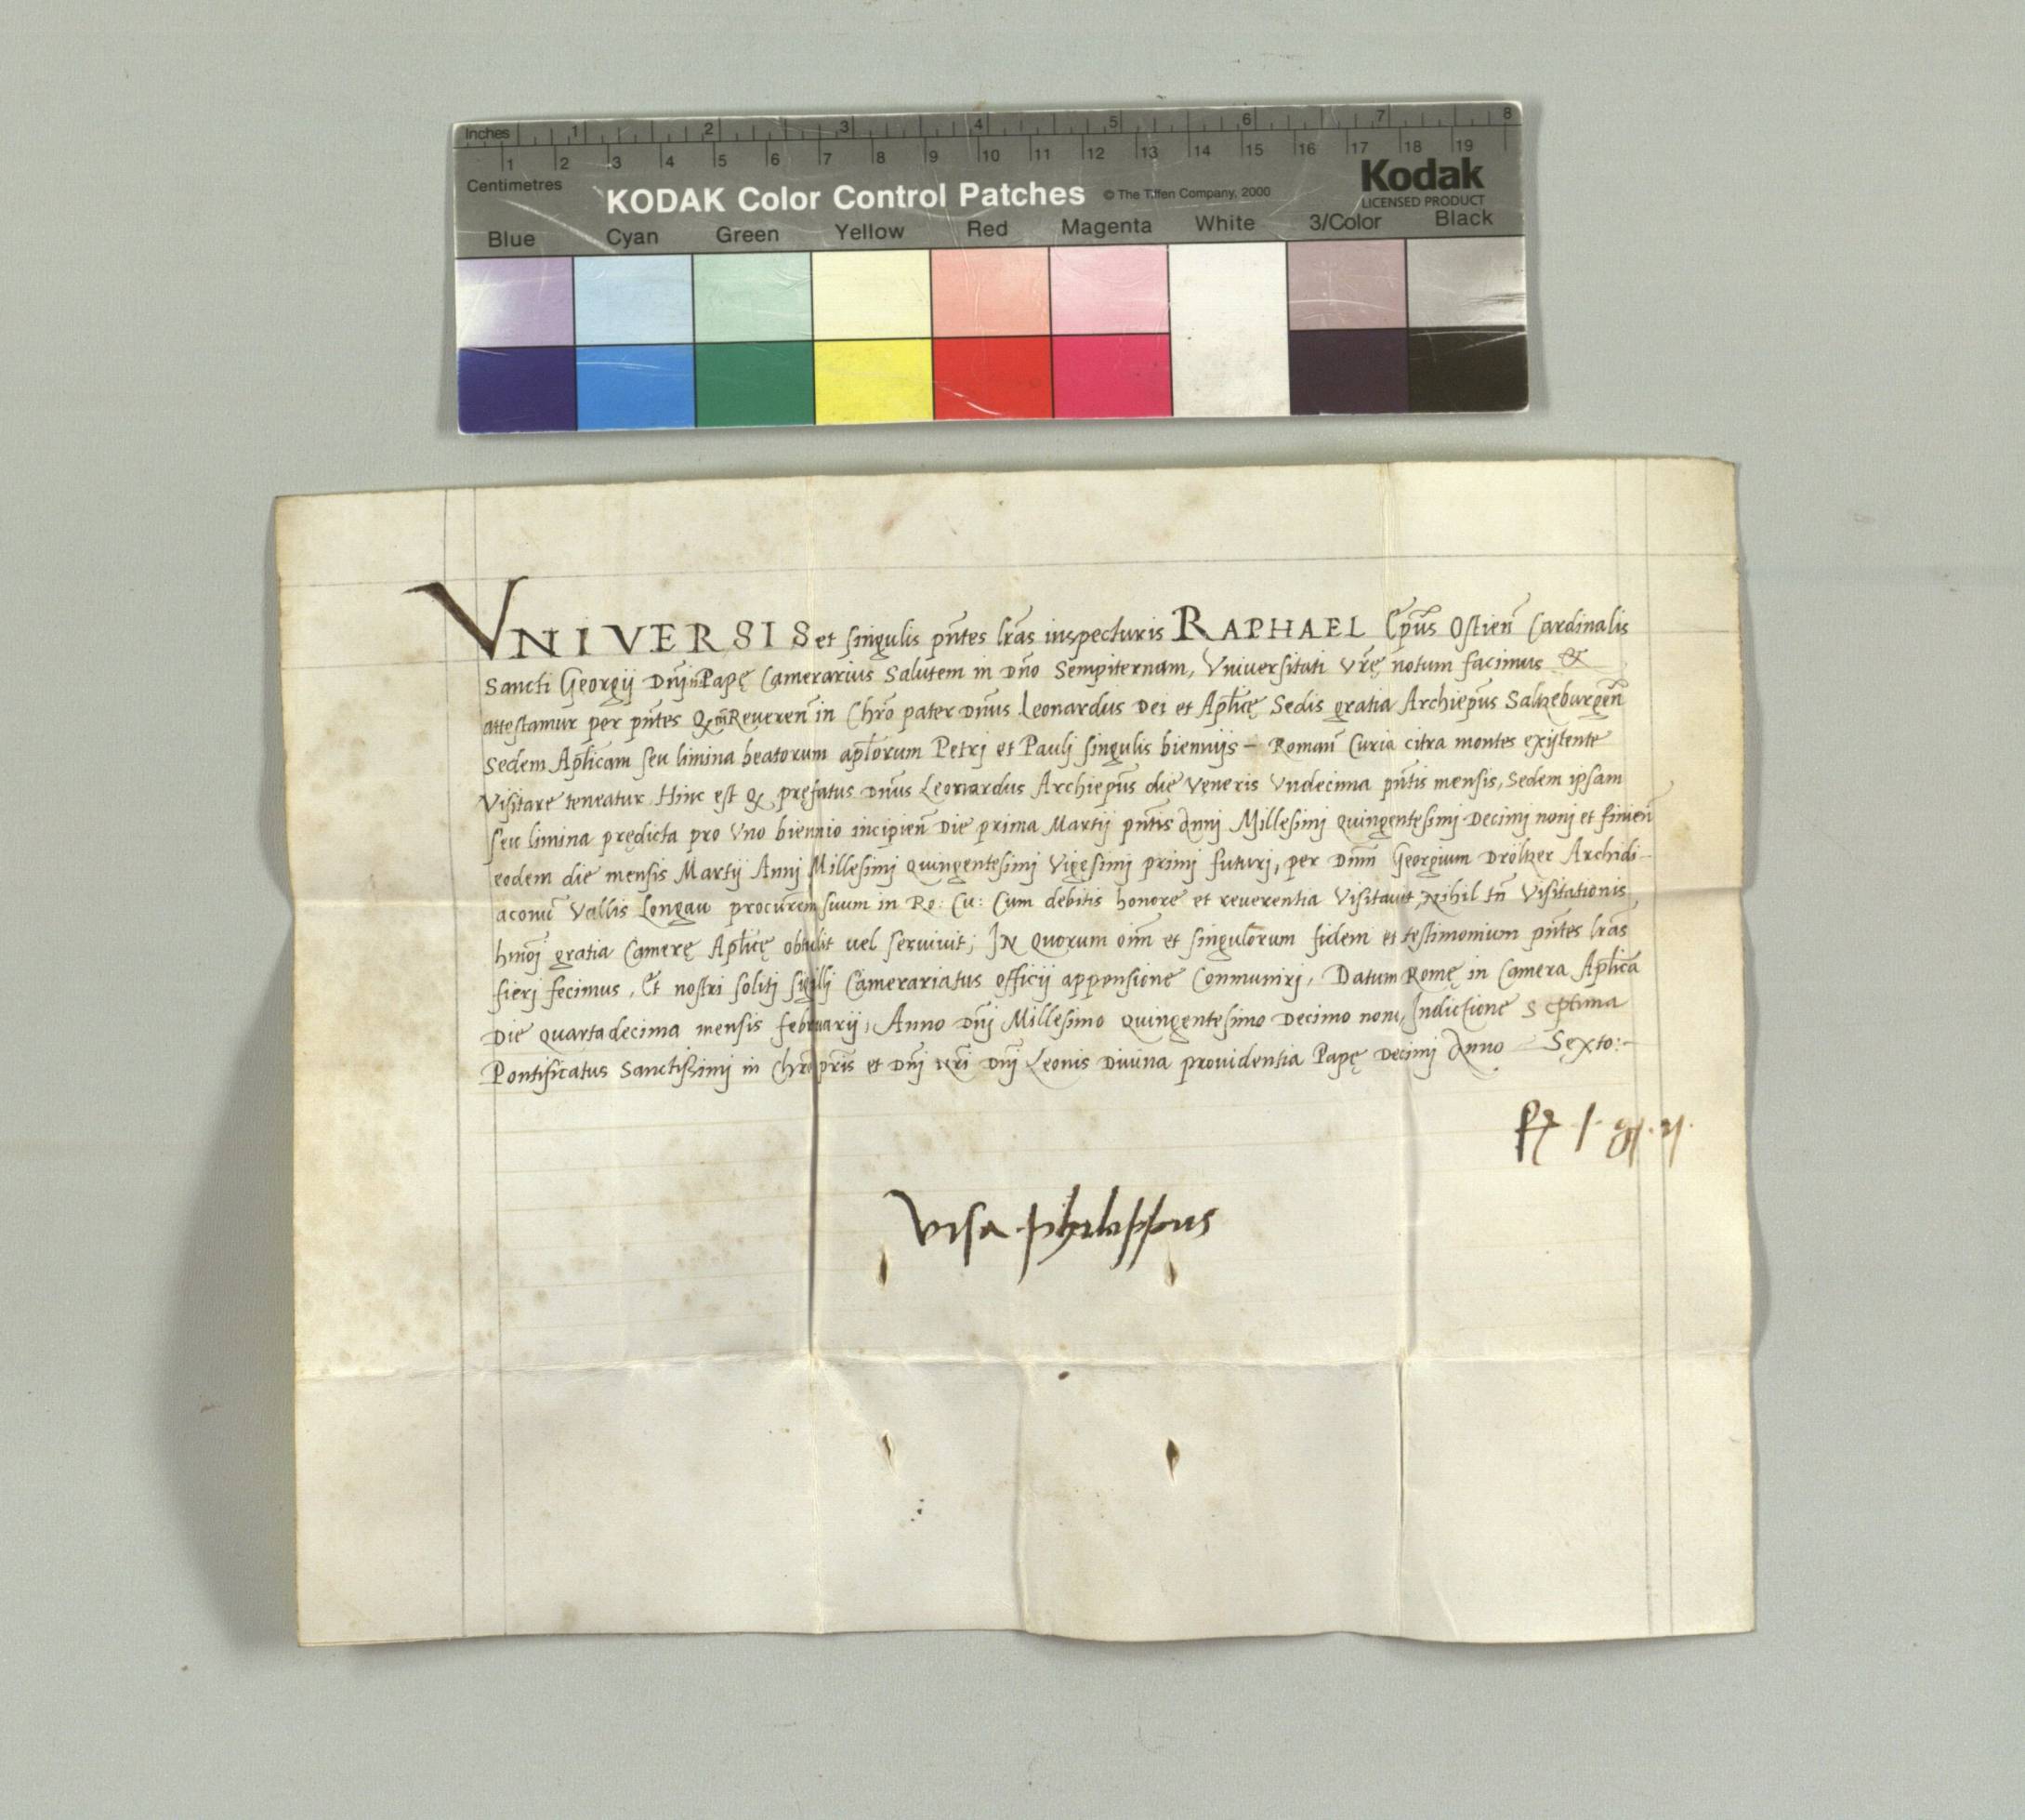 Inches 1 2 3 4 5 6 7 8
1 2 3 4 5 6 7 8 9 10 11 12 13 14 15 16 17 18 19
Centimetres
KODAK Color Control Patches © The Tiffen Company, 2000 Kodak
LICENSED PRODUCT
Blue Cyan Green Yellow Red Magenta White 3/Color Black
VNIVERSIS et singulis pn̄tes lr̄as inspecturis RAPHAEL Ep̄us Ostien̄ Cardinalis
Sancti Georgij Dn̄j Papę Camerarius Salutem in Dn̄o Sempiternam, Vniversitati vr̄ę notum facimus &
attestamur per pn̄tes Reueren̄ in Chr̄o pater Dn̄us Leonardus Dei et Ap̄licę Sedis gratia Archiep̄us Saltzeburgen̄
Sedem Ap̄licam seu limina beatorum ap̄lorum Petrj et Paulj singulis bienniis – Roman̄ Curia citra montes existente
Visitare teneatur Hinc est prefatus Dn̄us Leonardus Archiep̄us die veneris Vndecima pn̄tis mensis, Sedem ipsam
seu limina prędicta pro Vno biennio incipien̄ Die prima Martij pn̄tis Annj Millesimj quingentesimj Decimj nonj et finien̄
eodem die mensis Martij Annj Millesimj quingentesimj Vigesimj primj futurj, per Dn̄m Georgium Dröltzer Archidi-
aconū Vallis Longau procurem suum in Ro: Cu: Cum debitis honore et reverentia Visitauit, Nihil tn̄ Visitationis
hmōj gratia Camerę Ap̄licę obtulit vel servivit; IN quorum om̄ et singulorum fidem et testimonium pn̄tes lr̄as
fierj fecimus, Et nostri solitj sigillj Camerariatus officij appensione Conmunirj, Datum Romę in Camera Ap̄lica
Die quartadecima mensis februarij, Anno Dn̄j Millesimo quingentesimo Decimo nono, Indictione Septima
Pontificatus Sanctissimj in Chr̄o pr̄is et Dn̄j nr̄i Dn̄j Leonis Diuina prouidentia Papę Decimj Anno – Sexto:-
Visa philippus